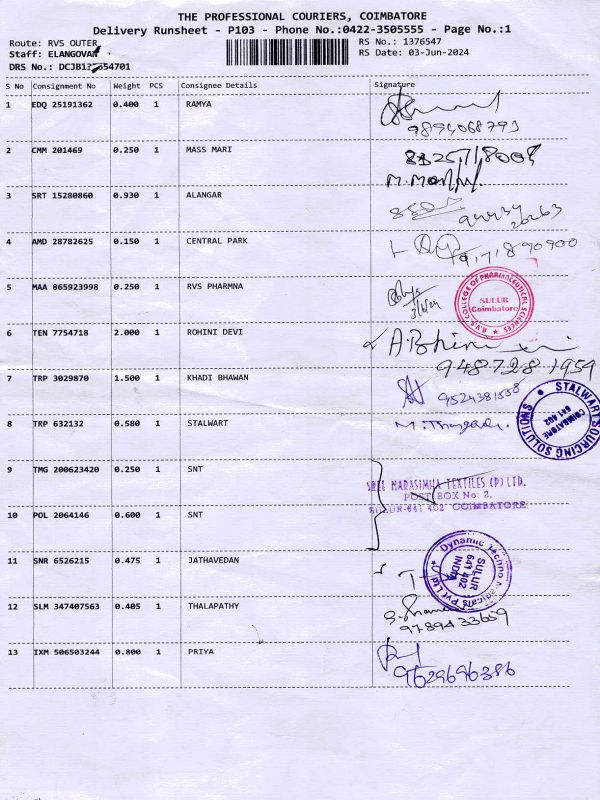 THE PROFESSIONAL COURIERS, COIMBATORE
Delivery Runsheet - P103 - Phone No.:0422-3505555 - Page No.:1
Route: RVS OUTER RS No.: 1376547
Staff: ELANGOVAN RS Date: 03-Jun-2024
DRS No.:
S No Consignment No Weight PCS Consignee Details Signature
1 EDQ 25191362 0.400 1 RAMYA
9894068793
2 CMM 201469 0.250 1 MASS MARI
M. Mari
3 SRT 15280860 0.930 1 ALANGAR
94434
20263
4 AMD 28782625 0.150 1 CENTRAL PARK
9171890900
5 MAA 865923998 0.250 1 RVS PHARMNA
3/6/24
R.V.S. COLLEGE OF PHARMACEUTICAL SCIENCES
SULUR
Coimbatore
6 TEN 7754718 2.000 1 ROHINI DEVI
9487281959
7 TRP 3029870 1.500 1 KHADI BHAWAN
9524381558
8 TRP 632132 0.580 1 STALWART
STALWART SOURCING SOLUTIONS
COIMBATORE
641 402
9 TMG 200623420 0.250 1 SNT
SREE NARASIMHA TEXTILES (P) LTD.
POST BOX No: 2,
SULUR-641 402 COIMBATORE
10 POL 2064146 0.600 1 SNT
11 SNR 6526215 0.475 1 JATHAVEDAN
Dynamic Techno Medicals Pvt Ltd
SULUR
641 402
INDIA
12 SLM 347407563 0.405 1 THALAPATHY
9789433659
13 IXM 506503244 0.800 1 PRIYA
9629696386